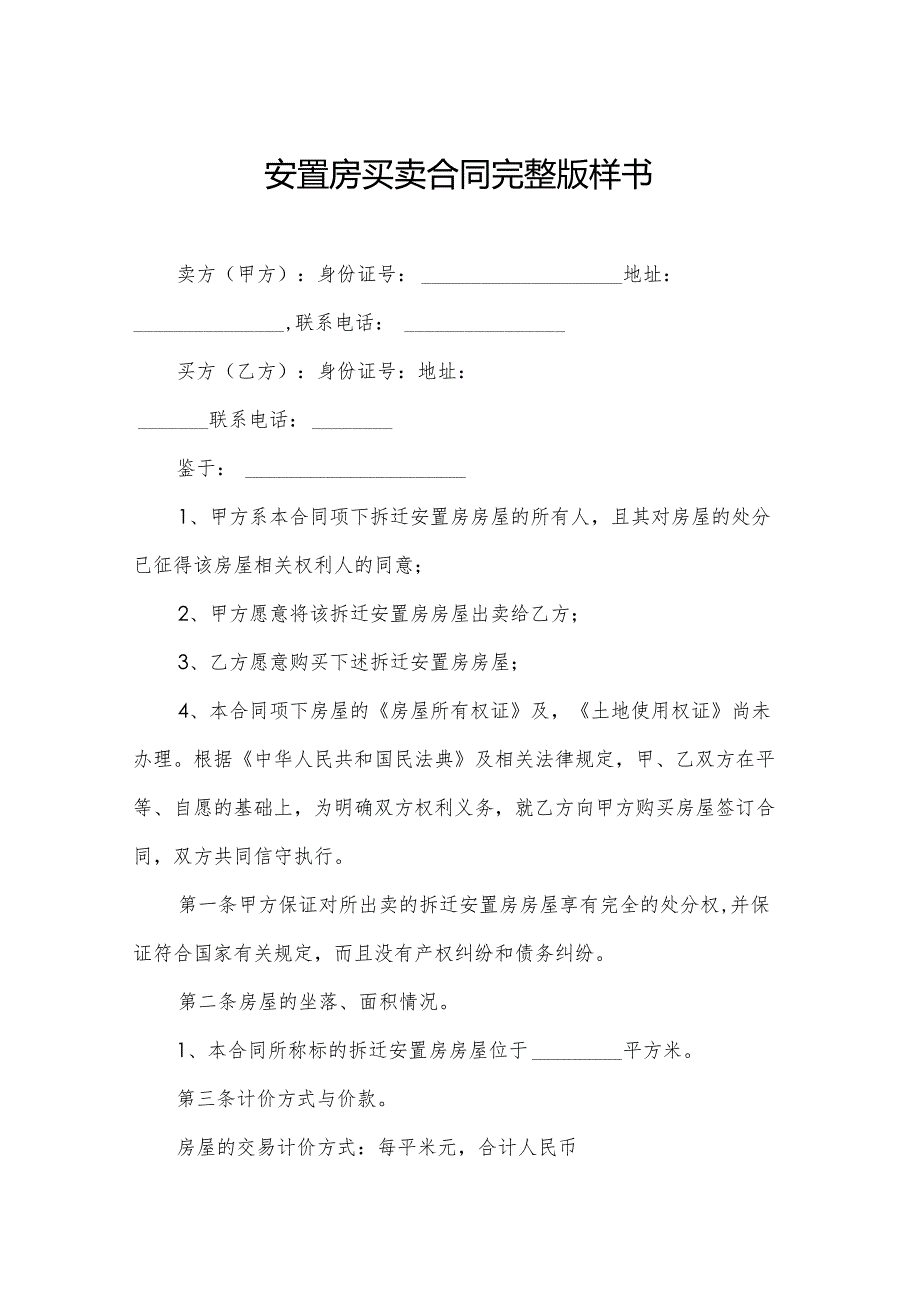 安置房买卖合同完整版样书
卖方（甲方）：身份证号：____________________地址：
_______________,联系电话：________________
买方（乙方）：身份证号：地址：
_______联系电话：________
鉴于：______________________
1、甲方系本合同项下拆迁安置房房屋的所有人，且其对房屋的处分
已征得该房屋相关权利人的同意；
2、甲方愿意将该拆迁安置房房屋出卖给乙方；
3、乙方愿意购买下述拆迁安置房房屋；
4、本合同项下房屋的《房屋所有权证》及，《土地使用权证》尚未
办理。根据《中华人民共和国民法典》及相关法律规定，甲、乙双方在平
等、自愿的基础上，为明确双方权利义务，就乙方向甲方购买房屋签订合
同，双方共同信守执行。
第一条甲方保证对所出卖的拆迁安置房房屋享有完全的处分权,并保
证符合国家有关规定，而且没有产权纠纷和债务纠纷。
第二条房屋的坐落、面积情况。
1、本合同所称标的拆迁安置房房屋位于_________平方米。
第三条计价方式与价款。
房屋的交易计价方式：每平米元，合计人民币